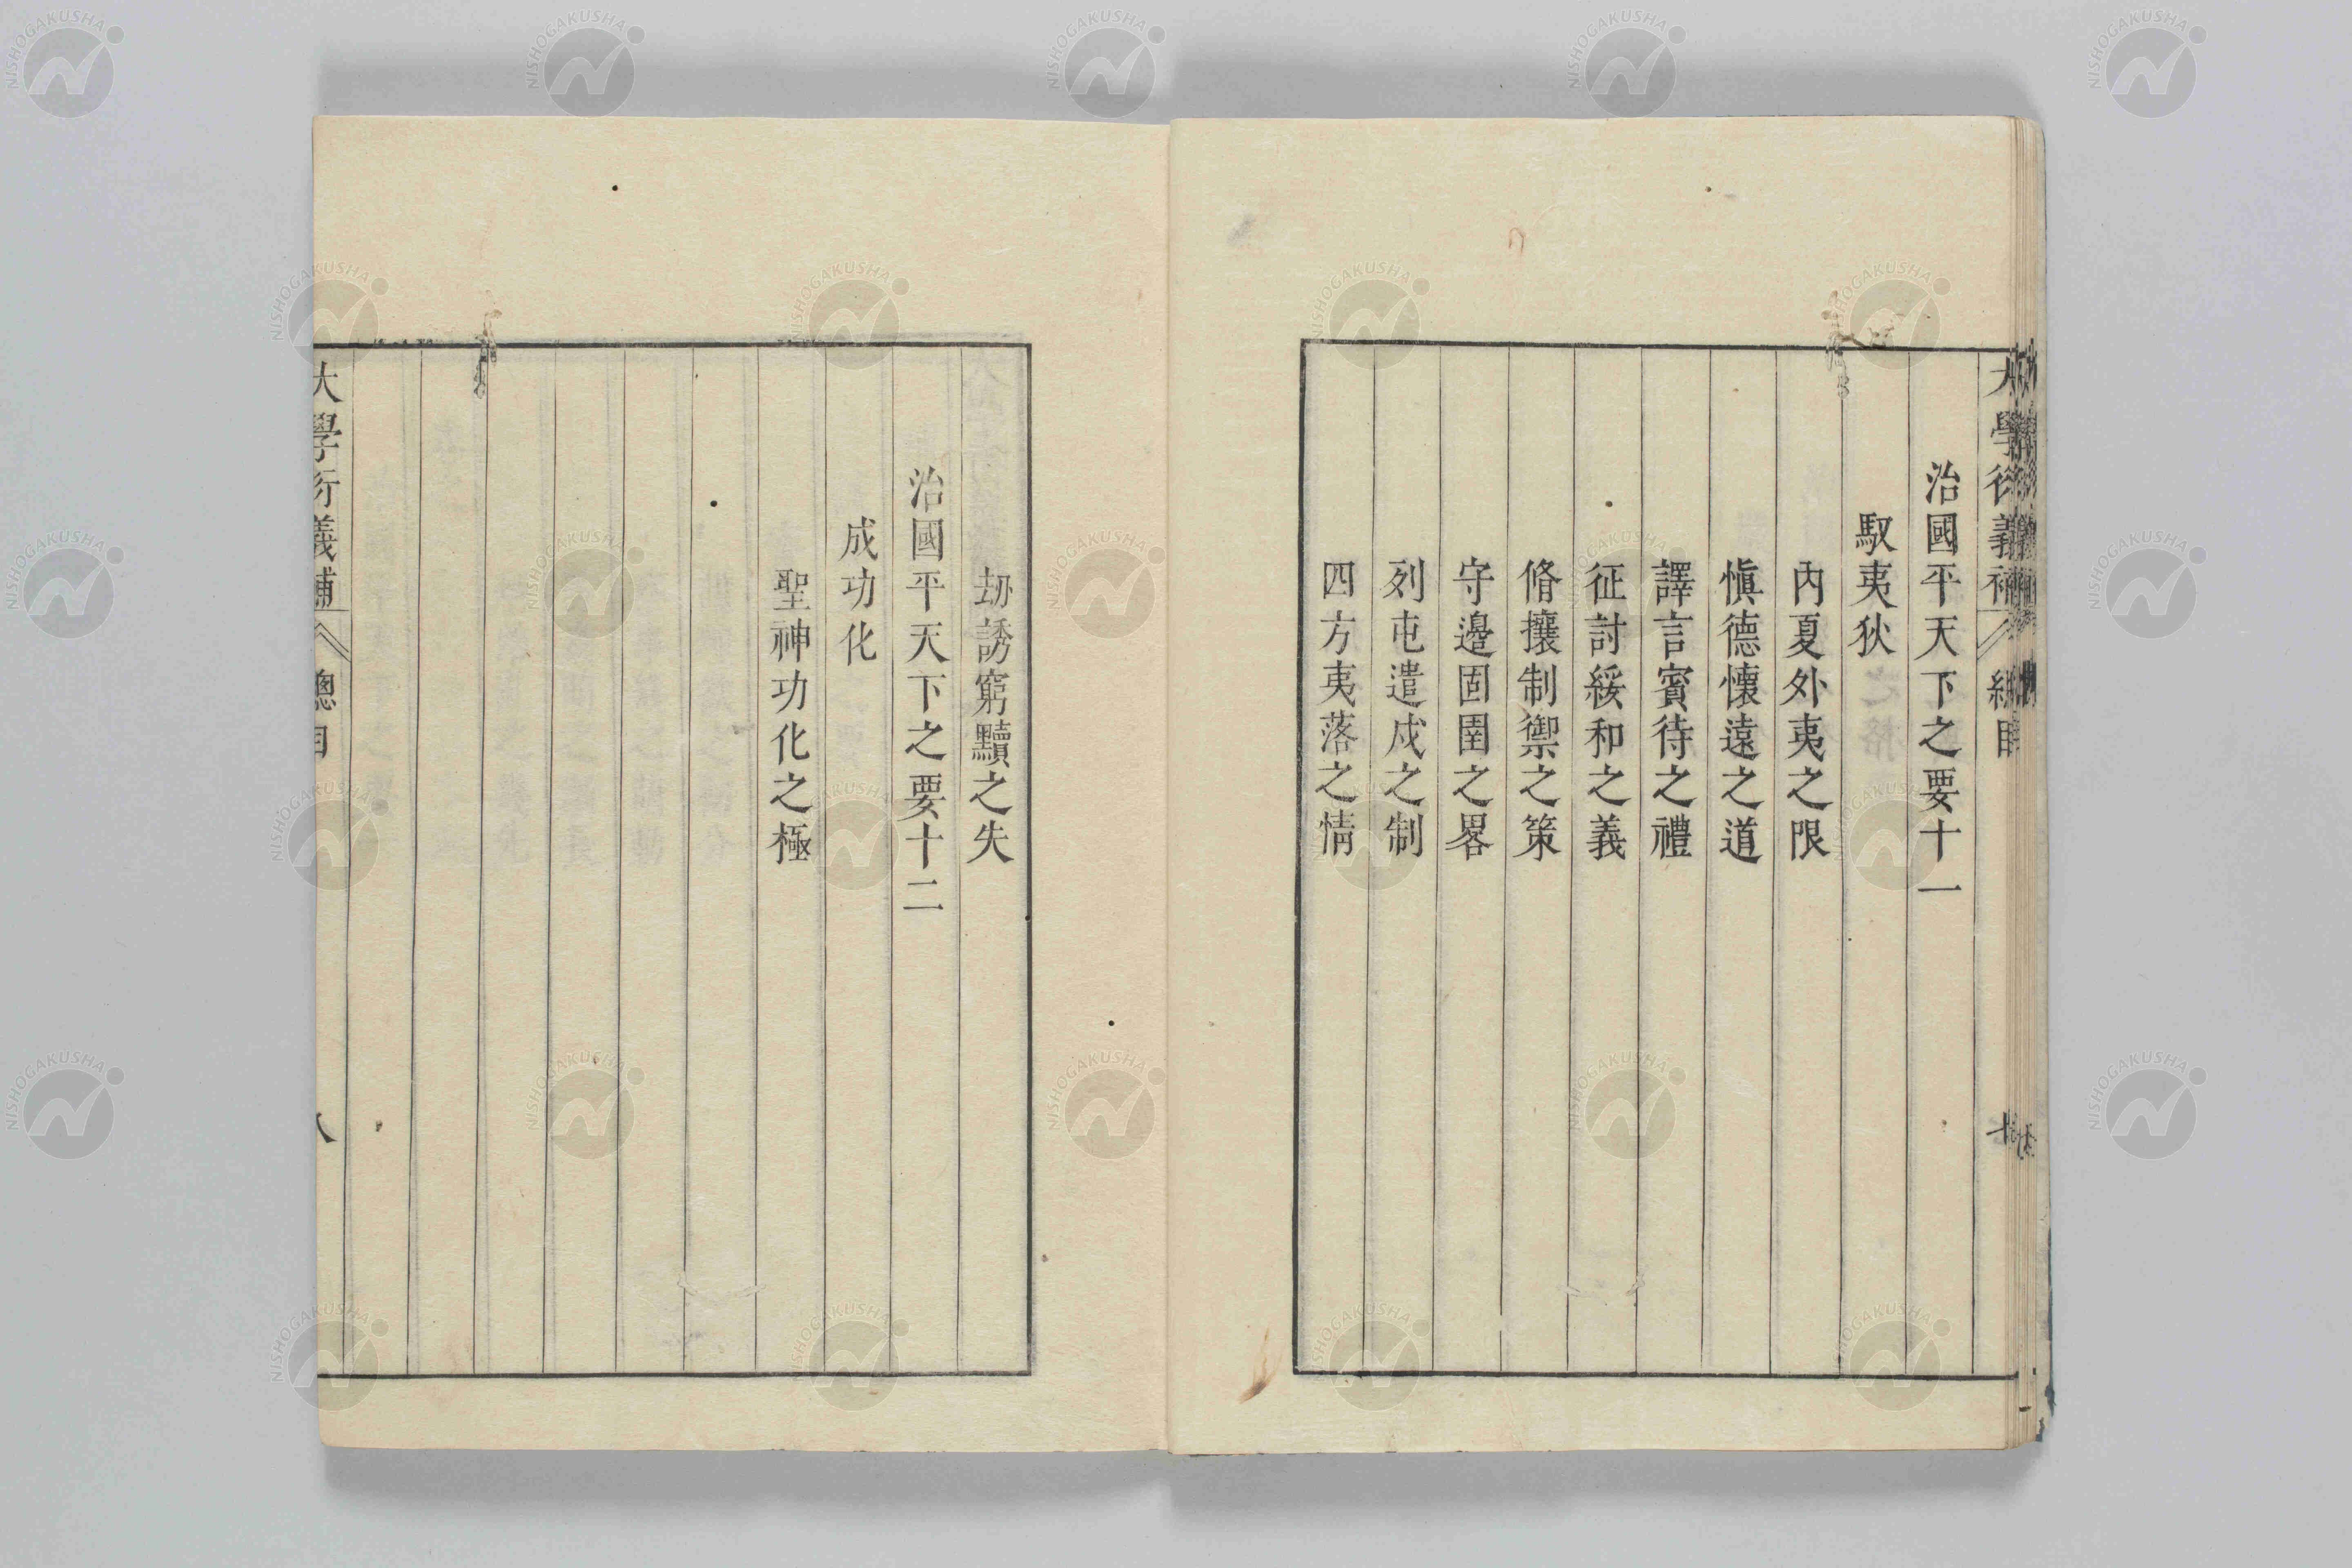 大學衍義補 總目
治國平天下之要十一
馭夷狄
內夏外夷之限
愼德懷遠之道
譯言賓待之禮
征討綏和之義
脩攘制禦之策
守邊固圉之畧
列屯遣戍之制
四方夷落之情
劫誘窮黷之失
治國平天下之要十二
成功化
聖神功化之極
大學衍義補 總目 八
NISHOGAKUSHA